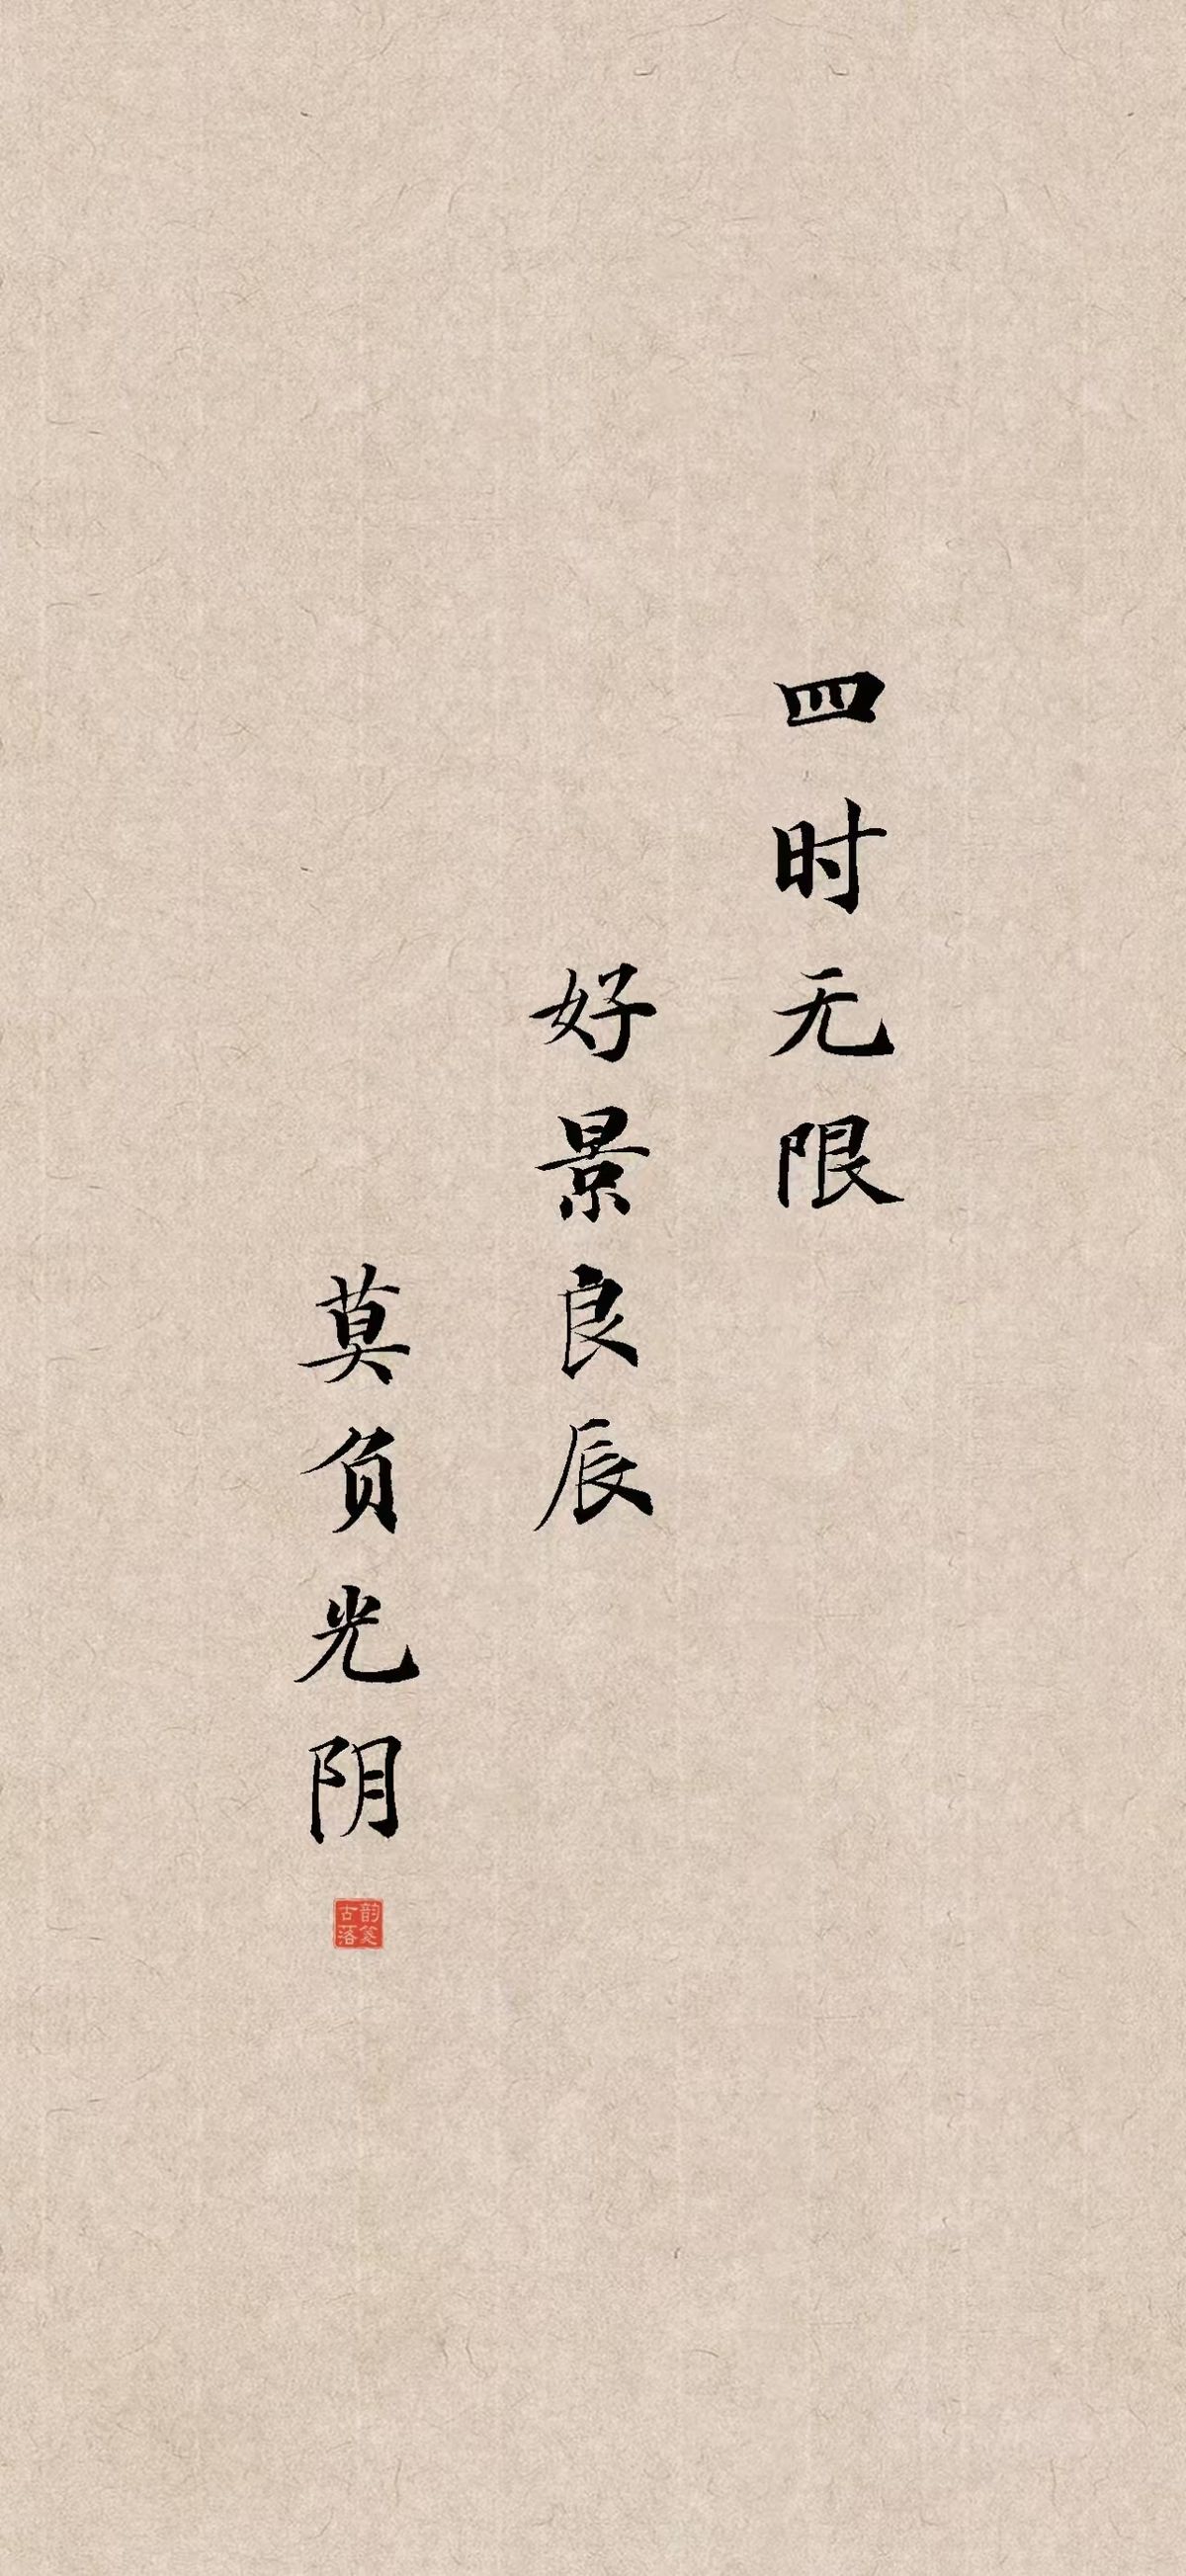 四时无限
好景良辰
莫负光阴
韵笺
古落